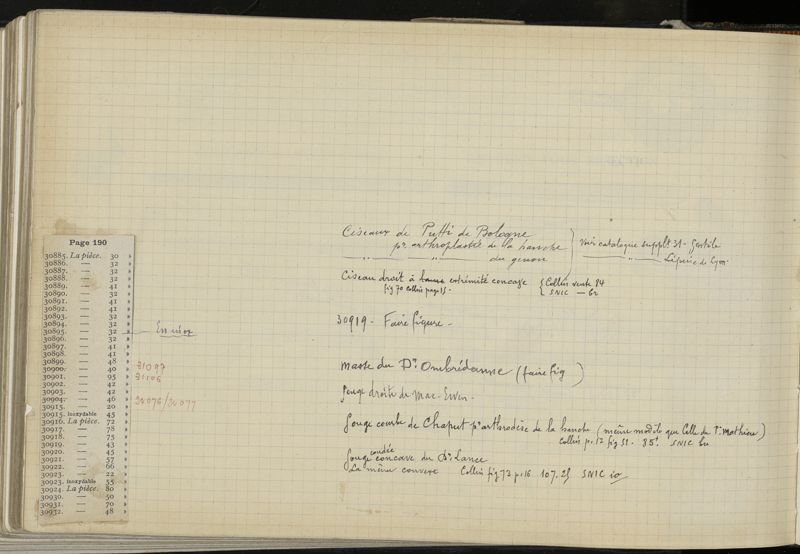 Page 190
30885. La pièce. 30 »
30886. — 32 »
30887. — 32 »
30888. — 32 »
30889. — 41 »
30890. — 32 »
30891. — 41 »
30892. — 41 »
30893. — 32 »
30894. — 32 »
30895. — 32 »
30896. — 32 »
30897. — 41 »
30898. — 41 »
30899. — 48 »
30900. — 40 »
30901. — 95 »
30902. — 42 »
30903. — 42 »
30904. — 46 »
30915. — 20 »
30915. Inoxydable 45 »
30916. La pièce. 72 »
30917. — 78 »
30918. — 75 »
30919. — 43 »
30920. — 45 »
30921. — 57 »
30922. — 66 »
30923. — 22 »
30923. Inoxydable 55 »
30924. La pièce. 80 »
30930. — 50 »
30931. — 70 »
30932. — 48 »
En inox
31097
31106
31076/31077
Ciseaux de Putti de Bologne
pr. arthroplastie de la hanche
— „ — „ — du genou
voir catalogue supplt 31 - Gentile
— „ — Lépine de Lyon
Ciseau droit à extrémité concave { Collin vente 84
fig 70 Collin page 15 - { SNIC — 62
30919 - Faire figure -
masse du Dr Ombrédanne (faire fig)
Gouge droite de Mac-Ewen.
Gouge courbe de Chaput pr arthrodèse de la hanche (même modèle que celle de P. Mathieu)
Collin p. 12 fig 51 - 85f. SNIC
Gouge coudée concave du Dr Lance
La même convexe Collin fig 73 p. 16 107.25 SNIC